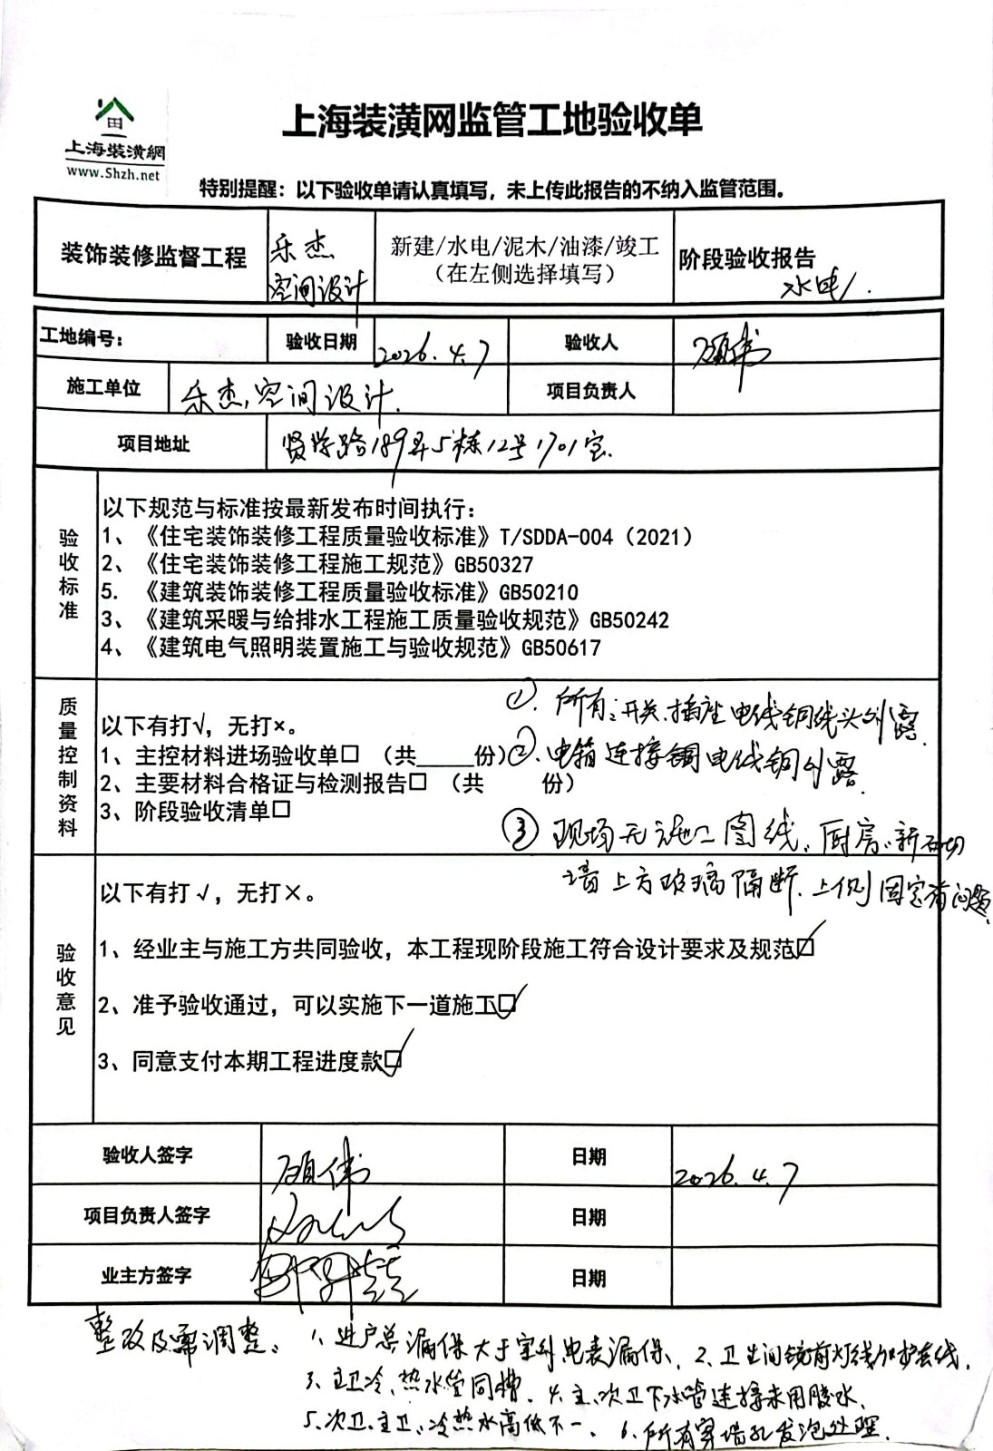 上海装潢網
www.Shzh.net
上海装潢网监管工地验收单
特别提醒：以下验收单请认真填写，未上传此报告的不纳入监管范围。
装饰装修监督工程
乐杰
空间设计
新建/水电/泥木/油漆/竣工
（在左侧选择填写）
阶段验收报告
水电
工地编号：
验收日期
2026.4.7
验收人
施工单位
乐杰空间设计.
项目负责人
项目地址
贤学路189弄5栋12号1701室.
验收标准
以下规范与标准按最新发布时间执行：
1、《住宅装饰装修工程质量验收标准》T/SDDA-004（2021）
2、《住宅装饰装修工程施工规范》GB50327
5.《建筑装饰装修工程质量验收标准》GB50210
3、《建筑采暖与给排水工程施工质量验收规范》GB50242
4、《建筑电气照明装置施工与验收规范》GB50617
质量控制资料
以下有打√，无打×。
1、主控材料进场验收单□ （共____份）
2、主要材料合格证与检测报告□ （共 份）
3、阶段验收清单□
①.所有开关.插座电线铜线头外露.
②.电箱连接铜电线铜外露.
③现场无施工图纸、厨房新砌
墙上方玻璃隔断.上侧固定有问题.
验收意见
以下有打√，无打×。
1、经业主与施工方共同验收，本工程现阶段施工符合设计要求及规范☑
2、准予验收通过，可以实施下一道施工☑
3、同意支付本期工程进度款☑
验收人签字
日期
2026.4.7
项目负责人签字
日期
业主方签字
日期
整改及需调整：
1、进户总漏保大于室外电表漏保、2、卫生间镜前灯线加护套线.
3、主卫冷、热水管同槽. 4、主、次卫下水管连接未用胶水.
5、次卫.主卫、冷热水高低不一、6、所有穿墙孔发泡处理.